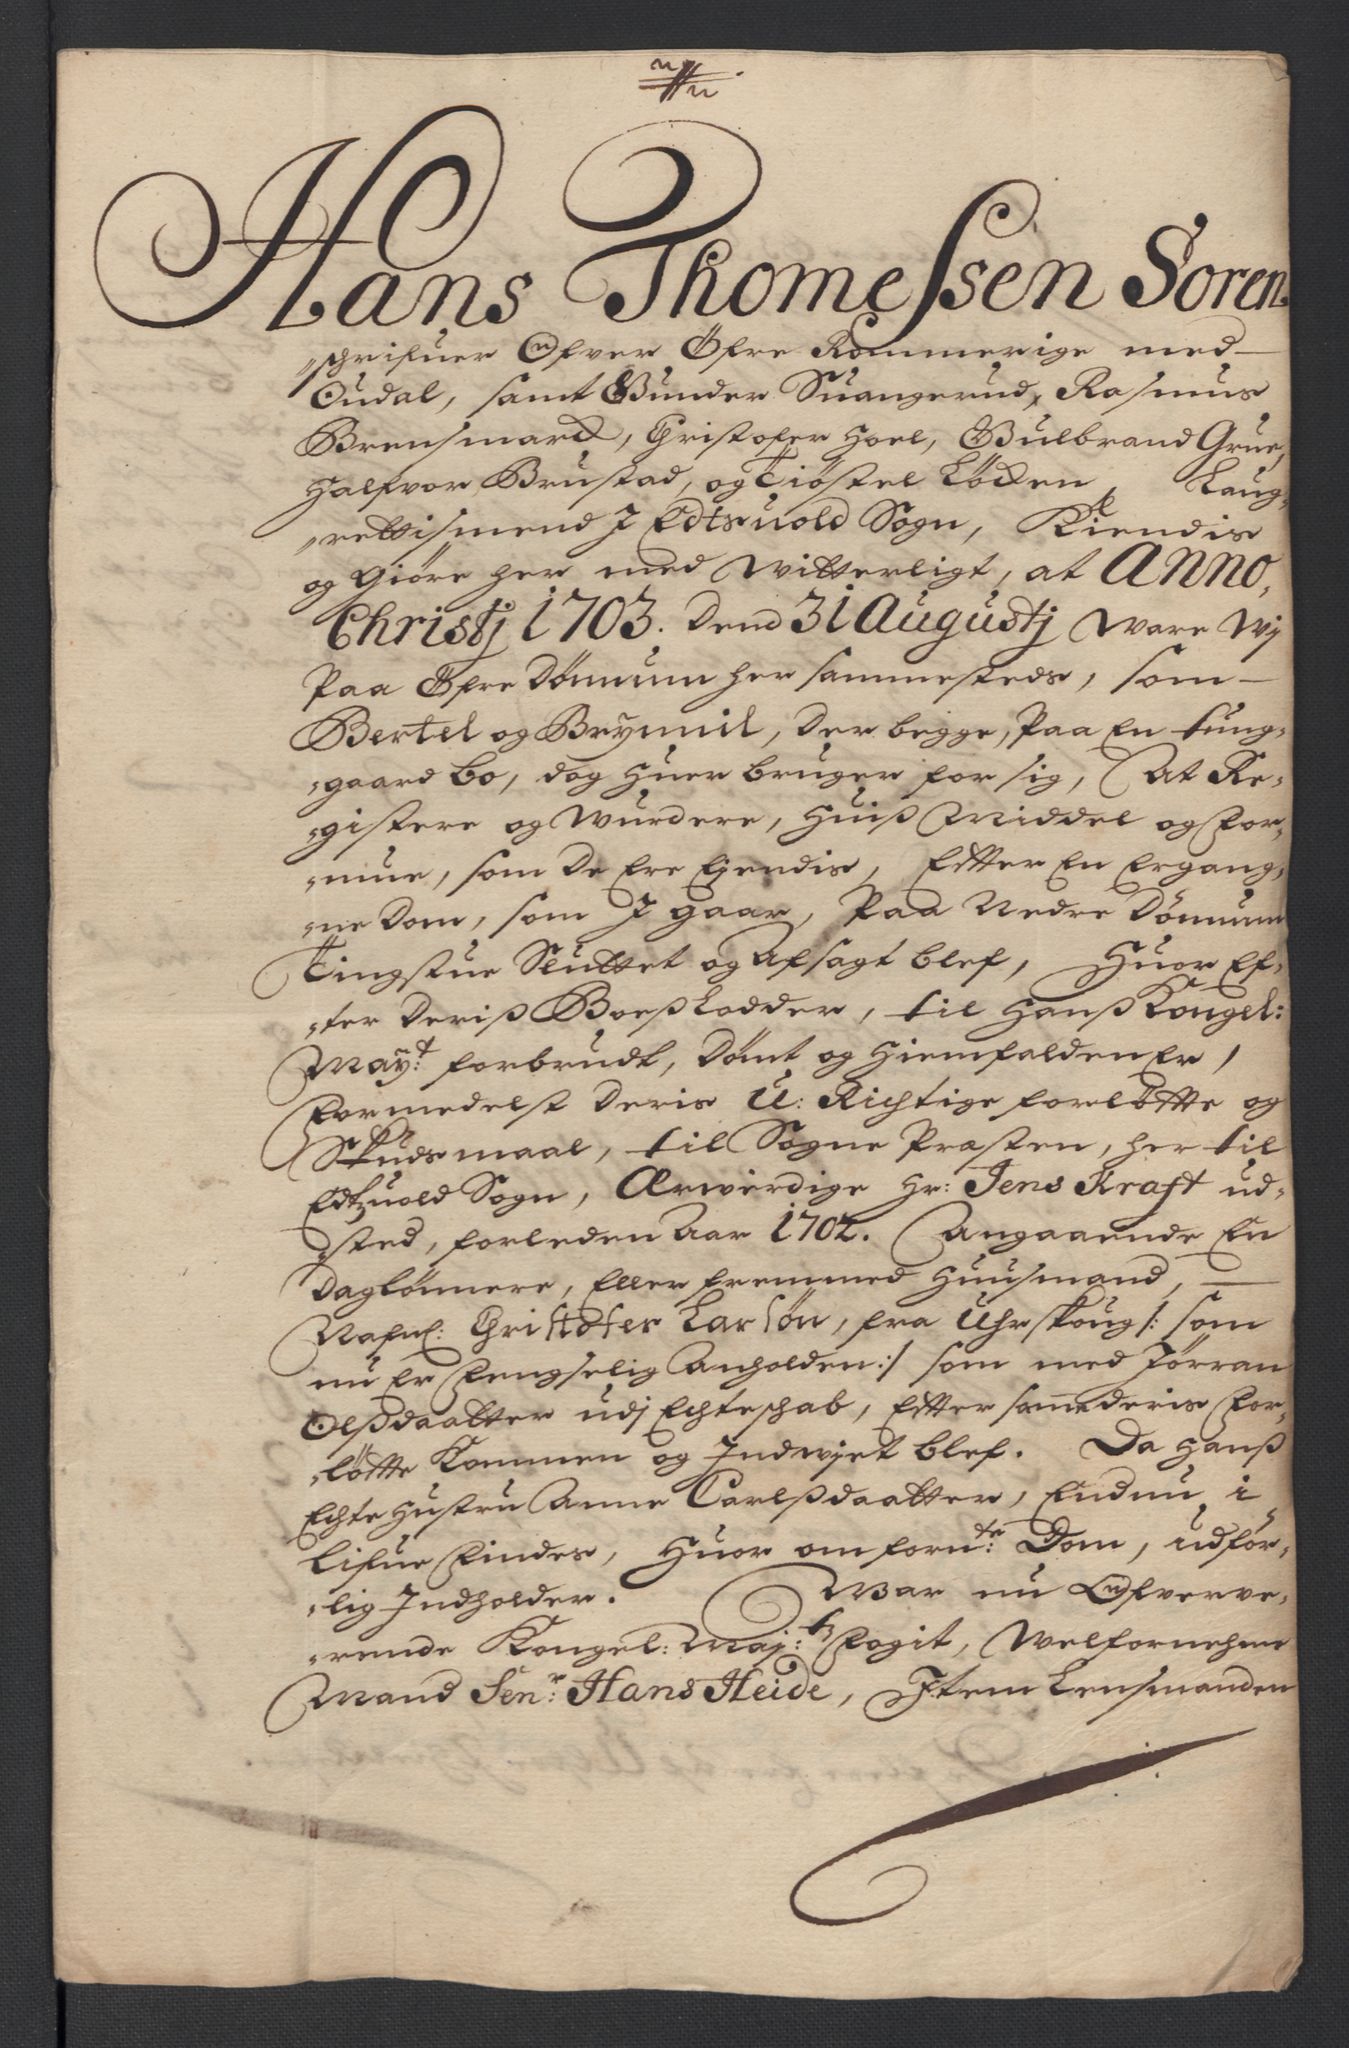 Hans Thomessen Soren-
schrifuer Ofver Öfre Rommerige med
Oudal, samt Gunder Suangerud, Rasmus
Brensmarck, Christofer Hoel, Gulbrand Grue,
Halfvor Brustad, og Tiöstel Löcken, Laug-
rettismend J Edtsuold Sogn, Kiendis
og Giöre her med Witterligt, at Anno
Christj 1703. Dend 31 Augustj Ware Wj
Paa Öfre Dönnum her sammesteds, som
Bertel og Brynnil, Der begge, Paa En tung-
gaard bo, dog Huer bruger for sig, At Re-
gistere og Wurdere, Huiß Middel og For-
mue, som De Ere Ejendis, Efter En Ergang-
ne Dom, som J gaar, Paa Nedre Dönnum
Tingstue Sluttet og Afsagt blef, Huor Ef-
ter Deriß Boeßlodder, til Hanß Kongel:
Mayt: forbrudt, Dömt og Hiemfalden Er,
Formedelst Deris U: Richtige forløfte og
Skudsmaal, til Sogne Præsten, her til
Edtzuold Sogn, Ærwerdige Hr: Jens Kraft ud-
sted, forleden Aar 1702. Angaaende En
Daglönnere, Eller fremmed Huusmand,
Nafnl: Christofer Larsön, fra Uhrskoug /: som
nu Er Fengselig Anholden :/ som med Jörran
Olßdaatter udj Echteschab, Efter samme deris For-
löfte Kommen og Indwjet blef. Da Hanß
Echte Hustru Anne Carlßdaatter, Endnu i
Lifue Findes, Huor om fornte: Dom, udför-
lig Indholder. War nu Ofverve-
rende Kongel: Maj:tz Fogit, Welfornehme
Mand Senr: Hans Heide, Item Lensmanden